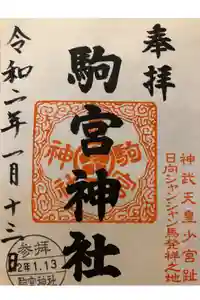 奉拝
神武天皇少宮趾
日向シャンシャン馬発祥之地
駒宮神社
駒宮神社
令和二年一月十三日
参拝
2年1.13
駒宮神社